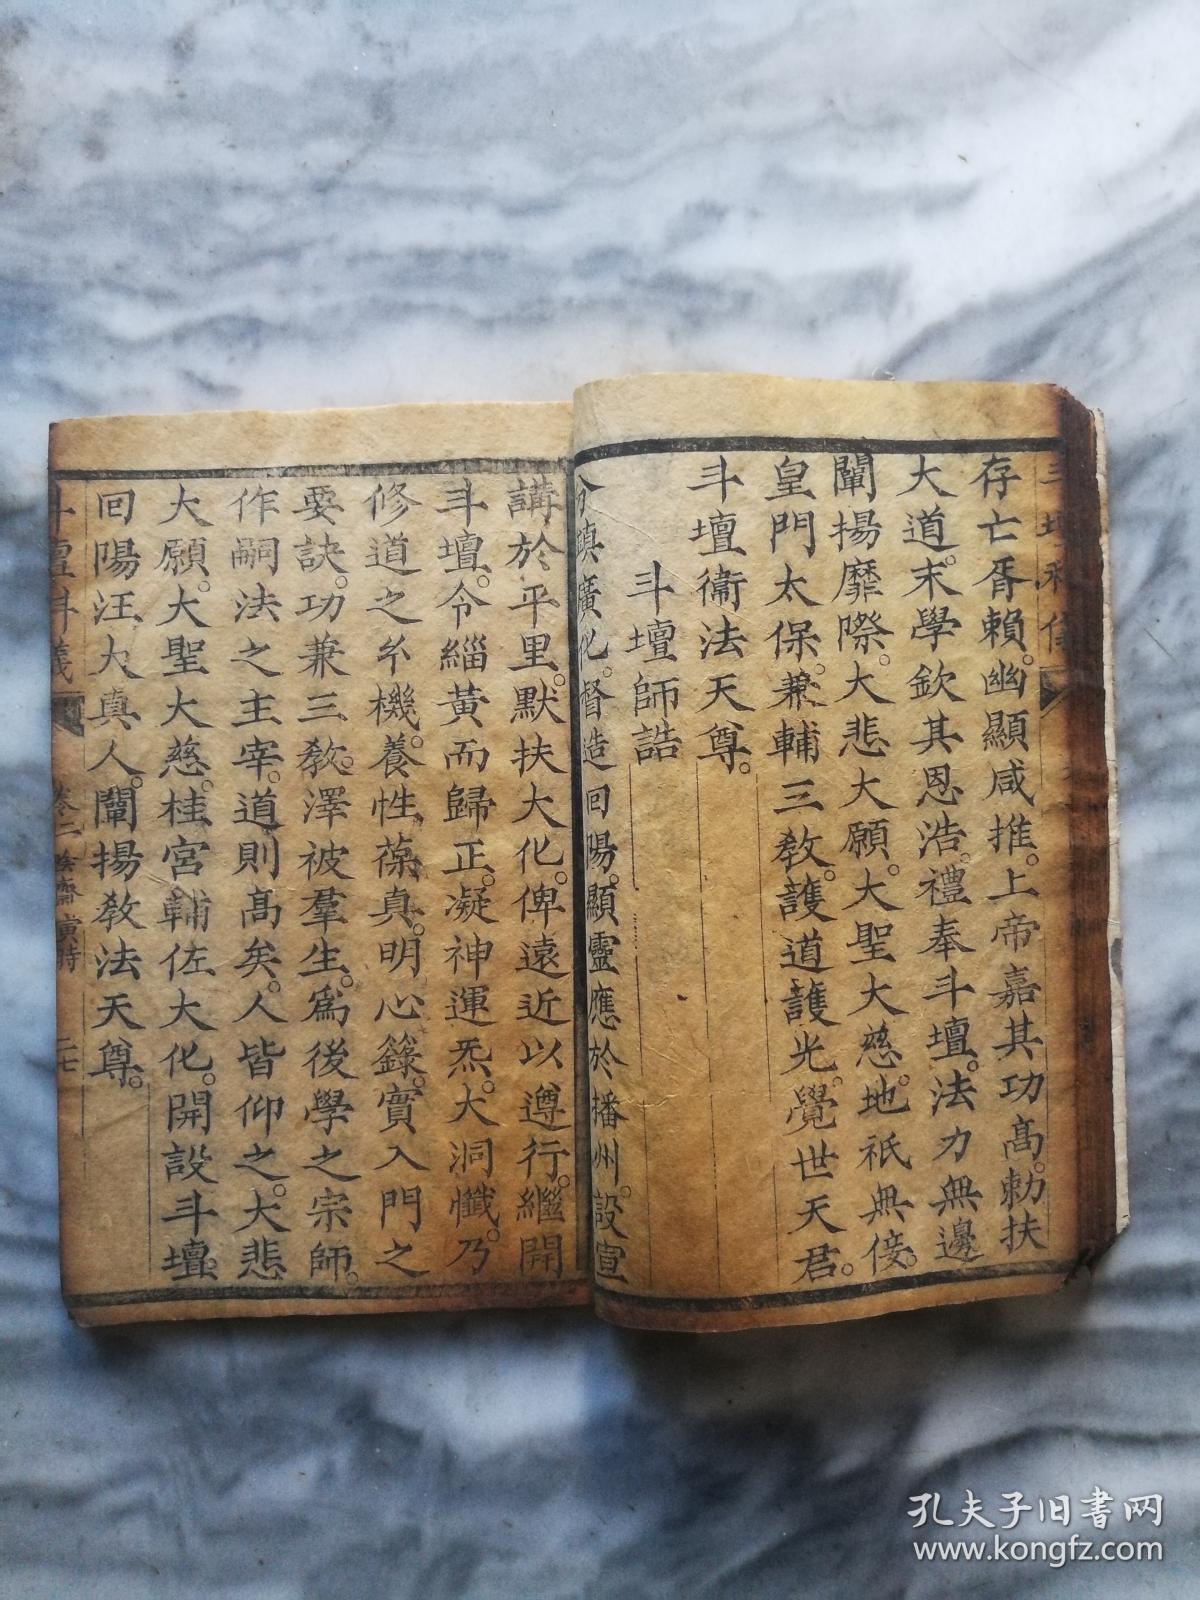 存亡胥賴。幽顯咸推。上帝嘉其功高。勅扶
大道。末學欽其恩浩。禮奉斗壇。法力無邊
闡揚靡際。大悲大願。大聖大慈。地祇無侫。
皇門太保。兼輔三教。護道護光。覺世天君。
斗壇衞法天尊。
斗壇師誥
分鎮廣化。督造回陽。顯靈應於播州。設宣
講於平里。默扶大化。俾遠近以遵行。繼開
斗壇。令緇黃而歸正。凝神運炁。大洞懺。乃
修道之𠫵機。養性葆真。明心籙。實入門之
要訣。功兼三教。澤被羣生。為後學之宗師。
作嗣法之主宰。道則高矣。人皆仰之。大悲
大願。大聖大慈。桂宮輔佐大化。開設斗壇。
回陽汪大真人。闡揚教法天尊。
斗壇科義 卷二 陰齋寅時 二七
孔夫子旧书网
www.kongfz.com